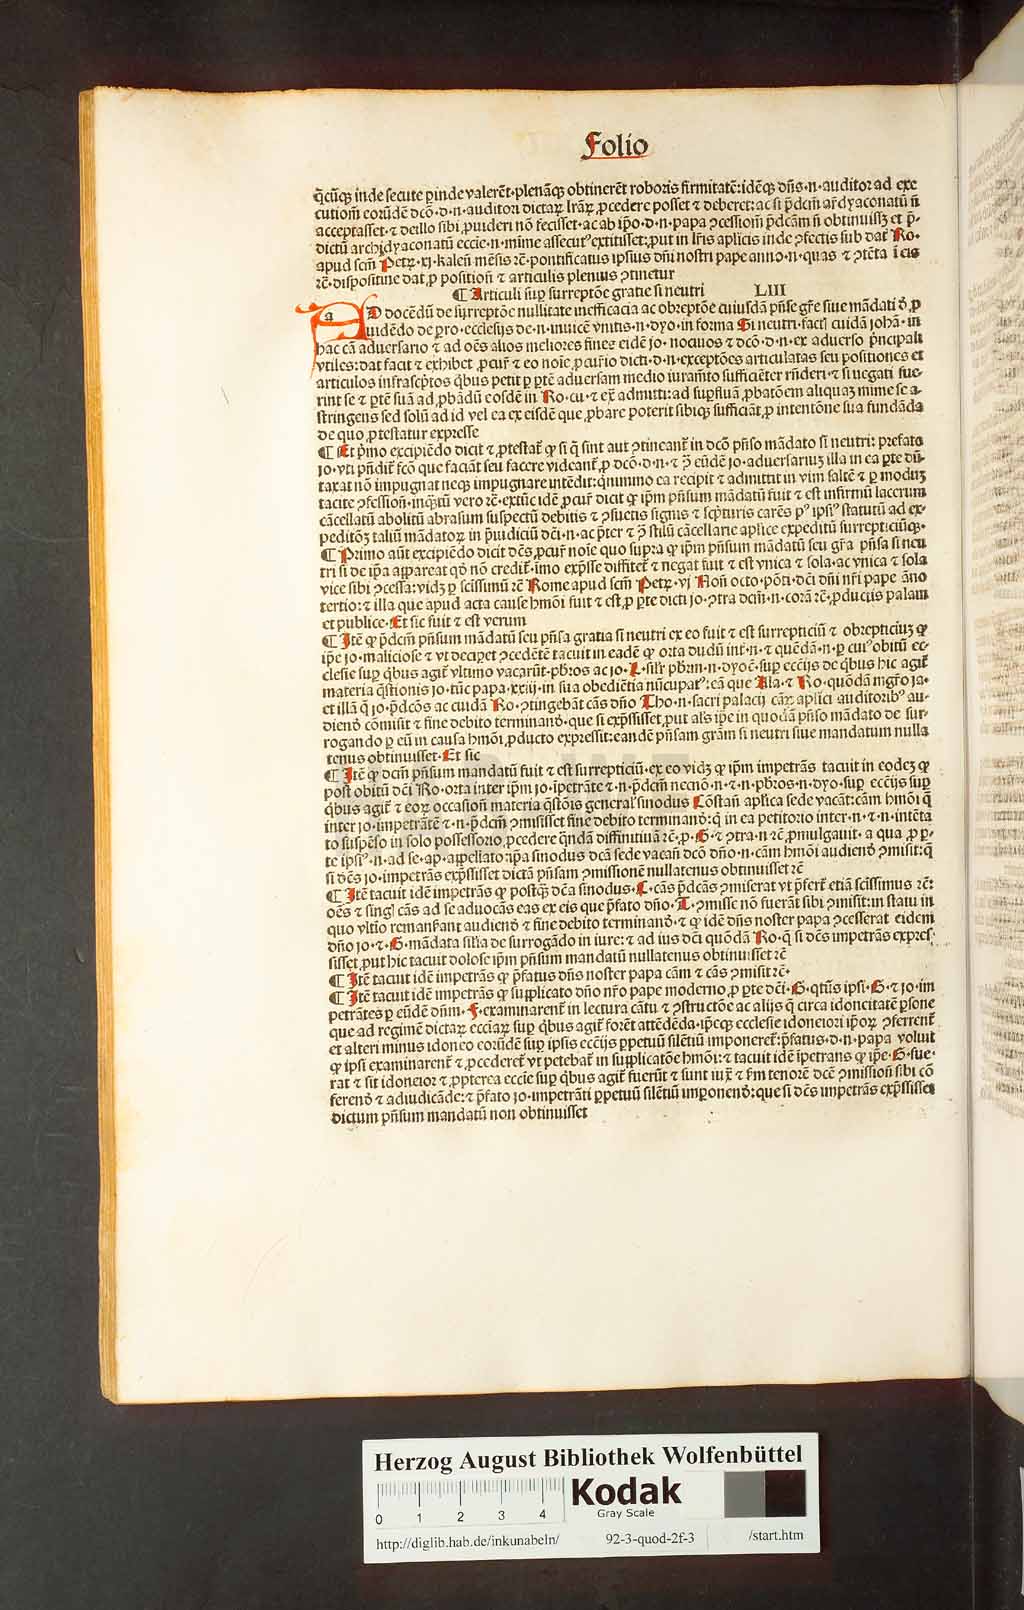 Folio
q̄cūq; inde secute ꝑinde valerēt·plenāq; obtinerēt roboris firmitatē:idēq; dn̄s·n·auditor ad exe
cutiom̄ eorūdē dcō·d·n·auditori dictaꝝ lr̄aꝝ ꝓcedere posset ⁊ deberet:ac si p̄dcm̄ ar̄dyaconatū n̄
acceptasset·⁊ de illo sibi ꝓuideri nō fecisset·ac ab ip̄o·d·n·papa ꝯcessiom̄ p̄dcām n̄ obtinuissꝫ et p̄·
dictū archidyaconatū eccie·n·mime assecut⁹ extitisset;put in lr̄is aplicis inde ꝯfectis sub dat̄ Ro·
apud scm̄ Petꝝ·xj·kalen̄ mēsis rē·pontificatus ipsius dn̄i nostri pape anno·n·quas ⁊ ꝯtēta ī eis
rē·dispositiue dat ꝓ position̄ ⁊ articulis plenius ꝯtinetur
¶ Articuli sup̄ surreptōe gratie si neutri LIII
AD docēdū de surreptōe nullitate inefficacia ac obreptōe cuiusdā pn̄se gr̄e siue mādati ꝺ̄ ꝓ
uidēdo de ꝑro·ecclesijs de·n·inuicē vnitis·n·dyo·in forma Si neutri·facti cuidā johā·in
hac cā aduersario ⁊ ad oēs alios meliores fines eidē jo·nociuos ⁊ dcō·d·n·ex aduerso p̄ncipali
vtiles:dat facit ⁊ exhibet ꝓcur̄ ⁊ eo noīe ꝓcur̄io dicti·d·n·exceptōes articulatas seu positiones et
articulos infrascp̄tos q̄bus petit ꝑ ꝑtē aduersam medio iuram̄to sufficiēter rn̄deri·⁊ si negati fue·
rint se ⁊ ꝑtē suā ad ꝓbādū eosdē in Ro·cu·⁊ ex̄ admitti:ad supfluā ꝓbatōem aliquaꝫ mime se a·
stringens sed solū ad id vel ea ex eisdē que ꝓbare poterit sibiq; sufficiāt ꝓ intentōne sua fundāda
de quo ꝓtestatur expresse
¶ Et p̄mo excipiēdo dicit ⁊ ꝓtestat̄ ꝙ si q̄ sint aut ꝯtineant̄ in dcō pn̄so mādato si neutri: prefato
jo·vti pn̄dit̄ fcō que faciāt seu facere videant̄ ꝓ dcō·d·n·⁊ ꝯ̄ eūdē jo·aduersariuꝫ illa in ea ꝑte dū·
taxat nō impugnat neq; impugnare intēdit:q̄nimmo ea recipit ⁊ admittit in vim saltē ⁊ ꝑ moduꝫ
tacite ꝯfession̄·inq̄ꝫtū vero rē·extūc idē ꝓcur̄ dicit ꝙ ip̄m pn̄sum mādatū fuit ⁊ est infirmū lacerum
cācellatū abolitū abrasum suspectū debitis ⁊ ꝯsuetis signis ⁊ scp̄turis carēs p⁹ ipsi⁹ statutū ad ex·
peditōꝫ taliū mādatoꝝ in p̄iudiciū dc̄i·n·ac p̄ter ⁊ ꝯ̄ stilū cācellarie aplice expeditū surrept:ciūq;·
¶ Primo aūt excipiēdo dicit dc̄s ꝓcur̄ noīe quo supra ꝙ ip̄m pn̄sum mādatū seu gr̄a pn̄sa si neu
tri si de ip̄a appareat qꝺ nō credit̄·imo exp̄sse diffitet̄ ⁊ negat fuit ⁊ est vnica ⁊ sola·ac vnica ⁊ sola
vice sibi ꝯcessa:vidꝫ ꝑ scissimū rē Rome apud scm̄ Petꝝ·vj Non̄ octo·pōti·dc̄i dn̄i nr̄i pape āno
tertio:⁊ illa que apud acta cause hm̄oi fuit ⁊ est ꝓ ꝑte dicti jo·ꝯtra dcm̄·n·corā rē·ꝓductis palam
et publice·Et sic fuit ⁊ est verum
¶ Itē ꝙ p̄dcm̄ pn̄sum mādatū seu pn̄sa gratia si neutri ex eo fuit ⁊ est surrepticiū ⁊ obrepticiuꝫ ꝙ
ip̄e jo·maliciose ⁊ vt deciꝑet ꝯcedētē tacuit in eadē ꝙ orta dudū int̄·n·⁊ quēdā·n·ꝑ cui⁹ obitū ec·
clesie sup̄ q̄bus agit̄ vltimo vacarūt·pb̄ros ac jo·L·silr̄ pb̄rm·n·dyoē·sup̄ eccijs de q̄bus hic agit̄
materia q̄stionis jo·tūc papa·xxiij·in sua obediētia nūcupat⁹:cā que Illa·⁊ Ro·quōdā mgr̄o ja·
et illā q̄ jo·p̄dcōs ac cuidā Ro·ꝯtingebāt cās dn̄o Tho·n·sacri palacij caꝝ aplici auditorib⁹ au·
diendꝭ cōmisit ⁊ fine debito terminandꝭ·que si exp̄ssisset ꝓut al̄s ip̄e in quodā pn̄so mādato de sur·
rogando ꝑ eū in causa hm̄oi ꝓducto expressit:eandē pn̄sam grām si neutri siue mandatum nulla
tenus obtinuisset·Et sic
¶ Itē ꝙ dcm̄ pn̄sum mandatū fuit ⁊ est surrepticiū·ex eo vidꝫ ꝙ ip̄m impetrās tacuit in eodeꝫ ꝙ
post obitū dc̄i Ro·orta inter ip̄m jo·īpetrāte ⁊·n·p̄dcm̄ necnō·n·⁊·n·pb̄ros·n·dyo·sup̄ eccijs sup̄
q̄bus agit̄ ⁊ eoꝝ occasion̄ materia q̄stōis general̄ sinodus Cōstan̄ aplica sede vacāt:cām hm̄oi q̄
inter jo·impetrātē ⁊·n·p̄dcm̄ ꝯmisisset fine debito terminandꝭ:q̄ in ea petitorio inter·n·⁊·n·intēta
to suspēso in solo possessorio ꝓcedere q̄ndā diffinitiuā rē·ꝓ·G·⁊ ꝯtra·n·rē ꝓmulgauit·a qua ꝓ ꝑ·
te ipsi⁹·n·ad se·ap·appellato:ip̄a sinodus dcā sede vacan̄ dcō dn̄o·n·cām hm̄oi audiendꝭ ꝯmisit:q̄
si dc̄s jo·impetrās exp̄ssisset dictā pn̄sam ꝯmissionē nullatenus obtinuisset rē
¶ Itē tacuit idē impetrās ꝙ postq̄ꝫ dc̄a sinodus·C·cās p̄dcās ꝯmiserat vt p̄fert̄ etiā scissimus rē:
oēs ⁊ singl̄ cās ad se aduocās eas ex eis que p̄fato dn̄o·T·ꝯmisse nō fuerāt sibi ꝯmisit:in statu in
quo vltīo remanserant audiendꝭ ⁊ fine debito terminandꝭ·⁊ ꝙ idē dn̄s noster papa ꝯcesserat eidem
dn̄o jo·⁊·G·mādata sil̄ia de surrogādo in iure:⁊ ad ius dc̄i quōdā Ro·q̄ si dc̄s impetrās expres·
sisset ꝓut hic tacuit dolose ip̄m pn̄sum mandatū nullatenus obtinuisset rē
¶ Itē tacuit idē impetrās ꝙ p̄fatus dn̄s noster papa cām ⁊ cās ꝯmisit rē·
¶ Itē tacuit idē impetrās ꝙ supplicato dn̄o nr̄o pape moderno ꝓ ꝑte dc̄i·G·qtūs ipsi·G·⁊ jo·im
petrātes ꝑ eūdē dn̄m·F·examinarent̄ in lectura cātu ⁊ ꝯstructōe ac alijs q̄ circa idoneitatē ꝑsone
que ad regimē dictaꝝ ecciaꝝ sup̄ q̄bus agit̄ forēt attēdēda·ip̄eq; ecclesie idoneiori ip̄oꝝ ꝯferrent̄
et alteri minus idoneo eorūdē sup̄ ipsis eccijs ꝑpetuū silētiū imponeret̄:p̄fatus·d·n·papa voluit
ꝙ ipsi examinarent̄ ⁊ ꝓcederet̄ vt petebat̄ in supplicatōe hm̄oi:⁊ tacuit idē īpetrans ꝙ ip̄e·G·fue·
rat ⁊ sit idoneior ⁊ ꝓpterea eccie sup̄ q̄bus agit̄ fuerūt ⁊ sunt iux̄ ⁊ fm̄ tenorē dcē ꝯmission̄ sibi cō
ferendꝭ ⁊ adiudicāde:⁊ p̄fato jo·impetrāti ꝑpetuū silētiū imponendꝭ:que si dc̄s impetrās exp̄ssisset
dictum pn̄sum mandatū non obtinuisset
Herzog August Bibliothek Wolfenbüttel
0 1 2 3 4 Kodak
Gray Scale
http://diglib.hab.de/inkunabeln/ 92-3-quod-2f-3 /start.htm